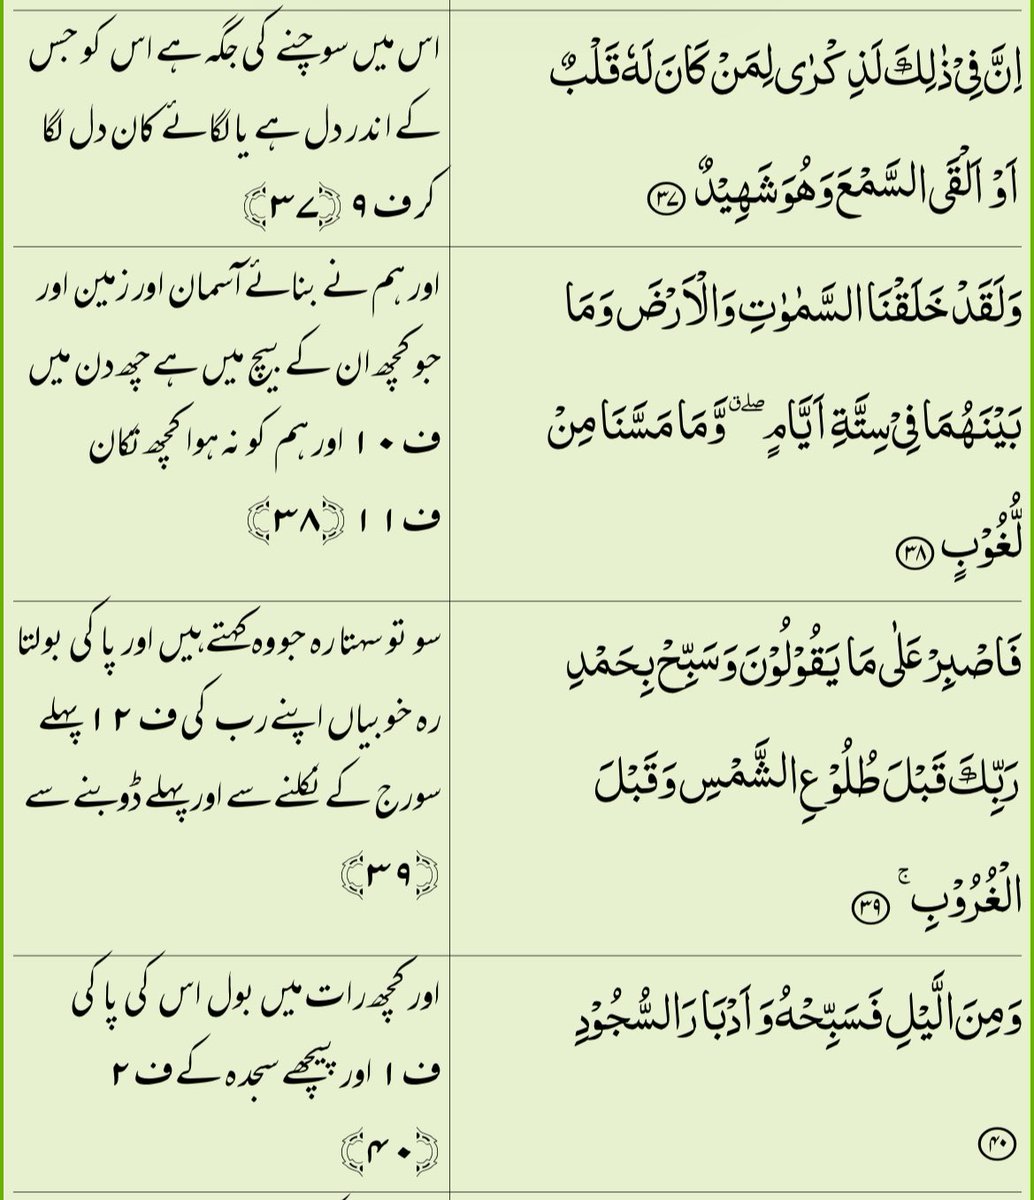 اِنَّ فِيْ ذٰلِكَ لَذِكْرٰى لِمَنْ كَانَ لَهٗ قَلْبٌ
اَوْ اَلْقَى السَّمْعَ وَهُوَ شَهِيْدٌ ۝۳۷
اس میں سوچنے کی جگہ ہے اس کو جس
کے اندر دل ہے یا لگائے کان دل لگا
کر ف ۹ ﴿۳۷﴾
وَلَقَدْ خَلَقْنَا السَّمٰوٰتِ وَالْاَرْضَ وَمَا
بَيْنَهُمَا فِيْ سِتَّةِ اَيَّامٍ ۖق وَّمَا مَسَّنَا مِنْ
لُّغُوْبٍ ۝۳۸
اور ہم نے بنائے آسمان اور زمین اور
جو کچھ ان کے بیچ میں ہے چھ دن میں
ف ۱۰ اور ہم کو نہ ہوا کچھ تکان
ف ۱۱ ﴿۳۸﴾
فَاصْبِرْ عَلٰى مَا يَقُوْلُوْنَ وَسَبِّحْ بِحَمْدِ
رَبِّكَ قَبْلَ طُلُوْعِ الشَّمْسِ وَقَبْلَ
الْغُرُوْبِ ۚ ۝۳۹
سو تو سہتا رہ جو وہ کہتے ہیں اور پاکی بولتا
رہ خوبیاں اپنے رب کی ف ۱۲ پہلے
سورج کے نکلنے سے اور پہلے ڈوبنے سے
﴿۳۹﴾
وَمِنَ الَّيْلِ فَسَبِّحْهُ وَاَدْبَارَ السُّجُوْدِ
۝۴۰
اور کچھ رات میں بول اس کی پاکی
ف ۱ اور پیچھے سجدہ کے ف ۲
﴿۴۰﴾